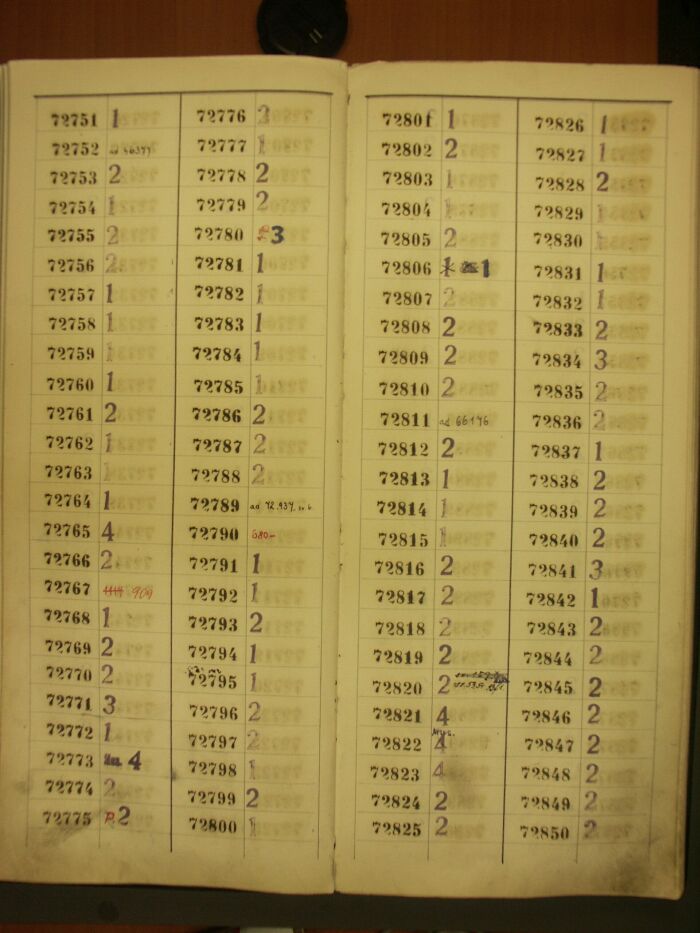 72751 1
72752 ad
72753 2
72754 1
72755 2
72756 2
72757 1
72758 1
72759 1
72760 1
72761 2
72762 1
72763 1
72764 1
72765 4
72766 2
72767 909
72768 1
72769 2
72770 2
72771 3
72772 1
72773 4
72774 2
72775 P. 2
72776 2
72777 1
72778 2
72779 2
72780 3
72781 1
72782 1
72783 1
72784 1
72785 1
72786 2
72787 2
72788 2
72789 ad 72.937
72790 580.-
72791 1
72792 1
72793 2
72794 1
72795 1
72796 2
72797 2
72798 1
72799 2
72800 1
72801 1
72802 2
72803 1
72804 1
72805 2
72806 1 1
72807 2
72808 2
72809 2
72810 2
72811 ad 66146
72812 2
72813 1
72814 1
72815 1
72816 2
72817 2
72818 2
72819 2
72820 2
72821 4
72822 4
72823 4
72824 2
72825 2
72826 1
72827 1
72828 2
72829 1
72830 1
72831 1
72832 1
72833 2
72834 3
72835 2
72836 2
72837 1
72838 2
72839 2
72840 2
72841 3
72842 1
72843 2
72844 2
72845 2
72846 2
72847 2
72848 2
72849 2
72850 2